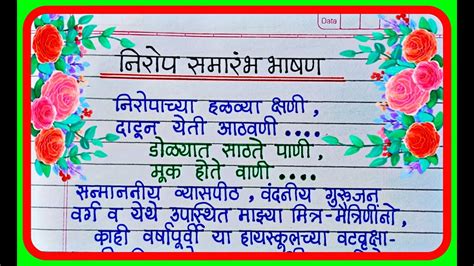 Data
निरोप समारंभ भाषण
निरोपाच्या हळव्या क्षणी ,
दाटून येती आठवणी ....
डोळ्यात साठते पाणी ,
मूक होते वाणी ....
सन्माननीय व्यासपीठ , वंदनीय गुरुजन
वर्ग व येथे उपस्थित माझ्या मित्र-मैत्रिणींनो,
काही वर्षापूर्वी या हायस्कूलच्या वटवृक्षा-